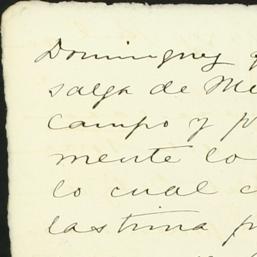 Domínguez q
salga de Me
campo y p
mente lo
lo cual c
lastima p